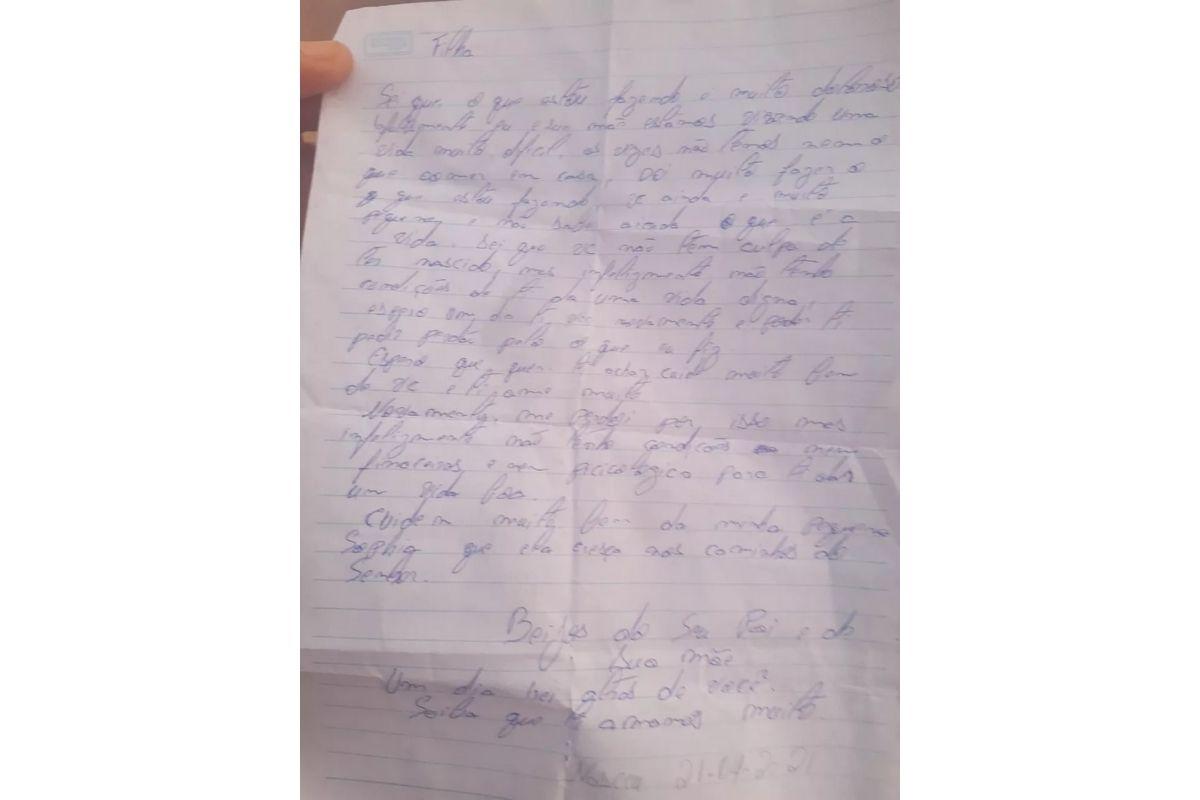 Filha
Sei que o que estou fazendo é muito doloroso
infelizmente eu e sua mãe estamos vivendo uma
vida muito dificil. as vezes não temos nem o
que comer em casa, Doi muito fazer o
que estou fazendo, vc ainda é muito
pequena e não sabe ainda o que é a
vida. Sei que vc não tem culpa de
ter nascido, mas infelizmente não tenho
condições de ti da uma vida digna,
espero um dia ti ver novamente e ti
pedir perdão pelo o que eu fiz
Espero que quem ti achar cuide muito bem
de vc e ti ame muito
Novamente me perdoi por isso mas
infelizmente não tenho condições nem
finaceiras e nem picicologico para ti dar
um vida boa.
Cuidem muito bem da minha pequena
Sophia que ela cresça nos caminhos do
Senhor.
Beijos do Seu Pai e da
Sua mãe
Um dia irei atras de você.
Saiba que ti amamos muito
21-04-2021